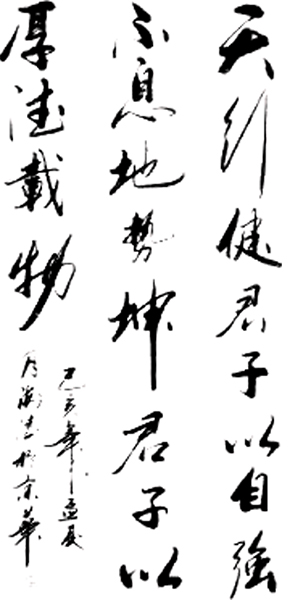 天行健君子以自強
不息地勢坤君子以
厚德載物
己亥年孟夏
於京華